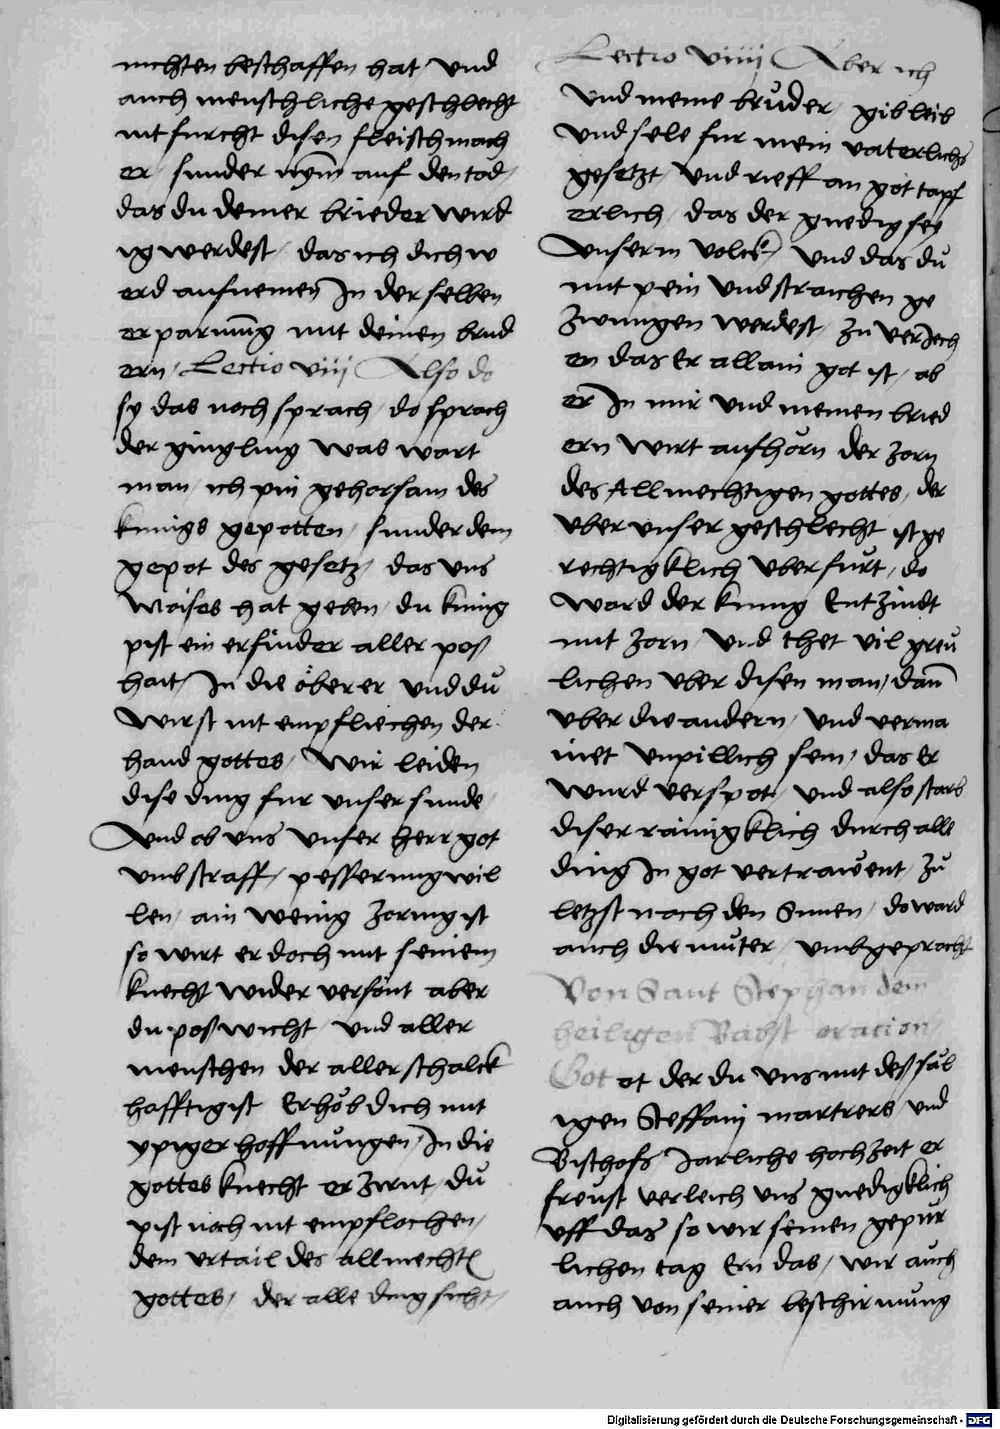 nichten beschaffen hat vnd
auch menschliche geschlecht
nit furcht disen fleischmach
er / sunder nym̄ auf den tod /
das du deiner brieder wird
ig werdest / das ich dich w
erd aufnemen In der selben
erparmūg mit deinen brud
ern / Lectio viij Also do
sy das noch sprach / do sprach
der gingling was wart
man / ich pin gehorsam des
kunigs gepotten / sunder dem
gepot des gesetz / das vns
Moises hat geben / du kunig
pist ein erfinder aller pos
hait / In die öberer vnd du
wirst nit empfliechen der
hand gottes / Wir leiden
dise ding fur vnser sunde /
Vnd ob vns vnser herr got
vmb straff / pesserung wil
len / ain wenig zornig ist
so wirt er doch mit seinem
knecht wider versönt aber
du poswicht / vnd aller
menschen der aller schalck
hafftigist Erhöb dich mit
ypiger hoffnungen / In die
gottes knecht erzirnt / du
pist noch nit empflochen /
dem vrtail des allmechtꝭ
gottes / der alle ding sicht /
Lectio viiij Aber ich
vnd meine brůder / gib leib
vnd sele fur mein vaterlichs
gesetzt / vnd rieff an got tapf
erlich / das der gnedig sey
vnserm volck / vnd das du
mit pein vnd straichen ge
zwungen werdest / zu veriech
en das Er allain got ist / ab
er In mir vnd meinen bried
ern wirt aufhörn der zorn
des Allmechtigen gottes / der
vber vnser geschlecht ist ge
rechtigklich vberfůrt / do
ward der kunig Entzindt
mit zorn / vnd thet vil greu
lichen vber disen man / dañ
vber die andern / vnd verma
inet vnpillich sein / das Er
wurd verspot / vnd also starb
diser rainigklich durch alle
ding In got vertrawent / zů
letzst nach den Sunen / do ward
auch die můter / vmbgepracht
Von Sant Stephan dem
heiligen Babst oration
Got ot der du vns mit des säl
igen Steffani martrers vnd
Bischofs Jarliche hochzeit er
freust verleich vns gnedigklich
vff das so wir seinen gepur
lichen tag Ern das / wir auch
auch von seiner beschirmung
Digitalisierung gefördert durch die Deutsche Forschungsgemeinschaft - DFG